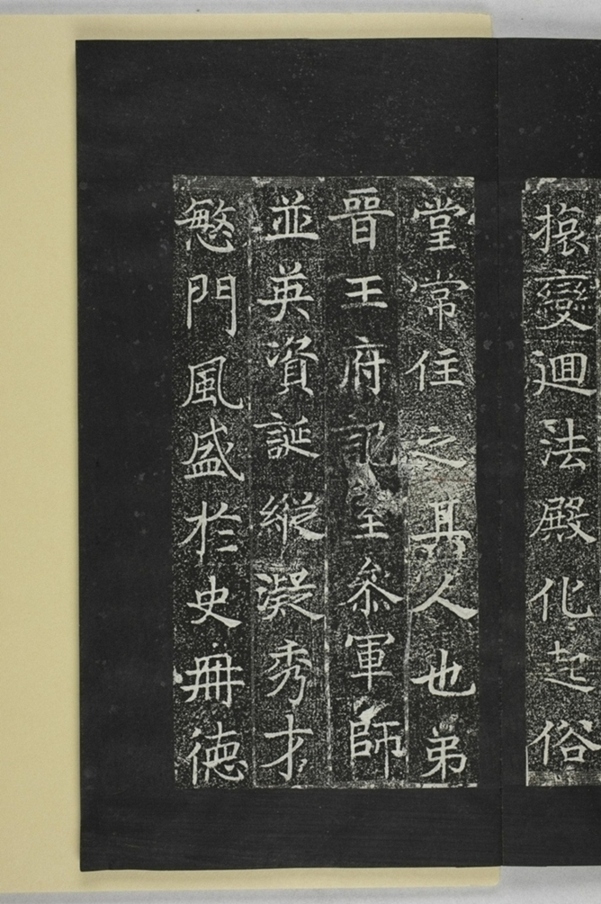 變迴法殿化起俗
堂常住之其人也弟
晉王府記室叅軍師
並英資誕縱凝秀才
慜門風盛於史冊德